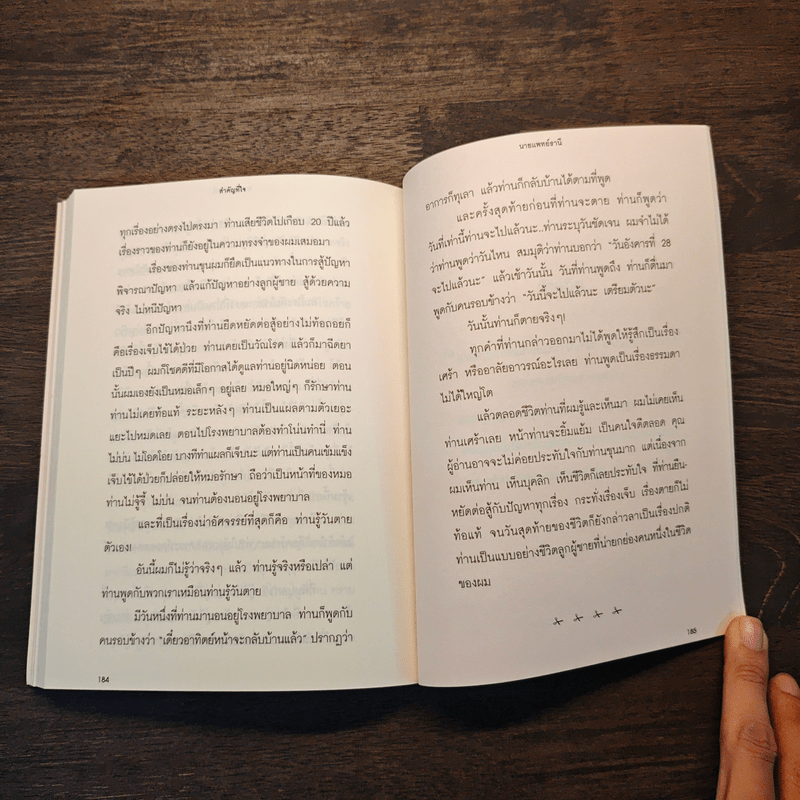 สำคัญที่ใจ
ทุกเรื่องอย่างตรงไปตรงมา ท่านเสียชีวิตไปเกือบ 20 ปีแล้ว
เรื่องราวของท่านก็ยังอยู่ในความทรงจำของผมเสมอมา
เรื่องของท่านขุนผมก็ยึดเป็นแนวทางในการสู้ปัญหา
พิจารณาปัญหา แล้วแก้ปัญหาอย่างลูกผู้ชาย สู้ด้วยความ
จริง ไม่หนีปัญหา
อีกปัญหานึงที่ท่านยืดหยัดต่อสู้อย่างไม่ท้อถอยก็
คือเรื่องเจ็บไข้ได้ป่วย ท่านเคยเป็นวัณโรค แล้วก็มาฉีดยา
เป็นปีๆ ผมก็โชคดีที่มีโอกาสได้ดูแลท่านอยู่นิดหน่อย ตอน
นั้นผมเองยังเป็นหมอเล็กๆ อยู่เลย หมอใหญ่ๆ ก็รักษาท่าน
ท่านไม่เคยท้อแท้ ระยะหลังๆ ท่านเป็นแผลตามตัวเยอะ
แยะไปหมดเลย ตอนไปโรงพยาบาลต้องทำโน่นทำนี่ ท่าน
ไม่บ่น ไม่โอดโอย บางทีทำแผลก็เจ็บนะ แต่ท่านเป็นคนเข้มแข็ง
เจ็บไข้ได้ป่วยก็ปล่อยให้หมอรักษา ถือว่าเป็นหน้าที่ของหมอ
ท่านไม่จู้จี้ ไม่บ่น จนท่านต้องนอนอยู่โรงพยาบาล
และที่เป็นเรื่องน่าอัศจรรย์ที่สุดก็คือ ท่านรู้วันตาย
ตัวเอง!
อันนี้ผมก็ไม่รู้ว่าจริงๆ แล้ว ท่านรู้จริงหรือเปล่า แต่
ท่านพูดกับพวกเราเหมือนท่านรู้วันตาย
มีวันหนึ่งที่ท่านมานอนอยู่โรงพยาบาล ท่านก็พูดกับ
คนรอบข้างว่า "เดี๋ยวอาทิตย์หน้าจะกลับบ้านแล้ว" ปรากฏว่า
184
นายแพทย์ธานี
อาการก็ทุเลา แล้วท่านก็กลับบ้านได้ตามที่พูด
และครั้งสุดท้ายก่อนที่ท่านจะตาย ท่านก็พูดว่า
วันที่เท่านี้ท่านจะไปแล้วนะ..ท่านระบุวันชัดเจน ผมจำไม่ได้
ว่าท่านพูดว่าวันไหน สมมุติว่าท่านบอกว่า "วันอังคารที่ 28
จะไปแล้วนะ" แล้วเช้าวันนั้น วันที่ท่านพูดถึง ท่านก็ตื่นมา
พูดกับคนรอบข้างว่า "วันนี้จะไปแล้วนะ เตรียมตัวนะ"
วันนั้นท่านก็ตายจริงๆ!
ทุกคำที่ท่านกล่าวออกมาไม่ได้พูดให้รู้สึกเป็นเรื่อง
เศร้า หรืออาลัยอาวรณ์อะไรเลย ท่านพูดเป็นเรื่องธรรมดา
ไม่ได้ใหญ่โต
แล้วตลอดชีวิตท่านที่ผมรู้และเห็นมา ผมไม่เคยเห็น
ท่านเศร้าเลย หน้าท่านจะยิ้มแย้ม เป็นคนใจดีตลอด คุณ
ผู้อ่านอาจจะไม่ค่อยประทับใจกับท่านขุนมาก แต่เนื่องจาก
ผมเห็นท่าน เห็นบุคลิก เห็นชีวิตก็เลยประทับใจ ที่ท่านยืน-
หยัดต่อสู้กับปัญหาทุกเรื่อง กระทั่งเรื่องเจ็บ เรื่องตายก็ไม่
ท้อแท้ จนวันสุดท้ายของชีวิตก็ยังกล่าวลาเป็นเรื่องปกติ
ท่านเป็นแบบอย่างชีวิตลูกผู้ชายที่น่ายกย่องคนหนึ่งในชีวิต
ของผม
185